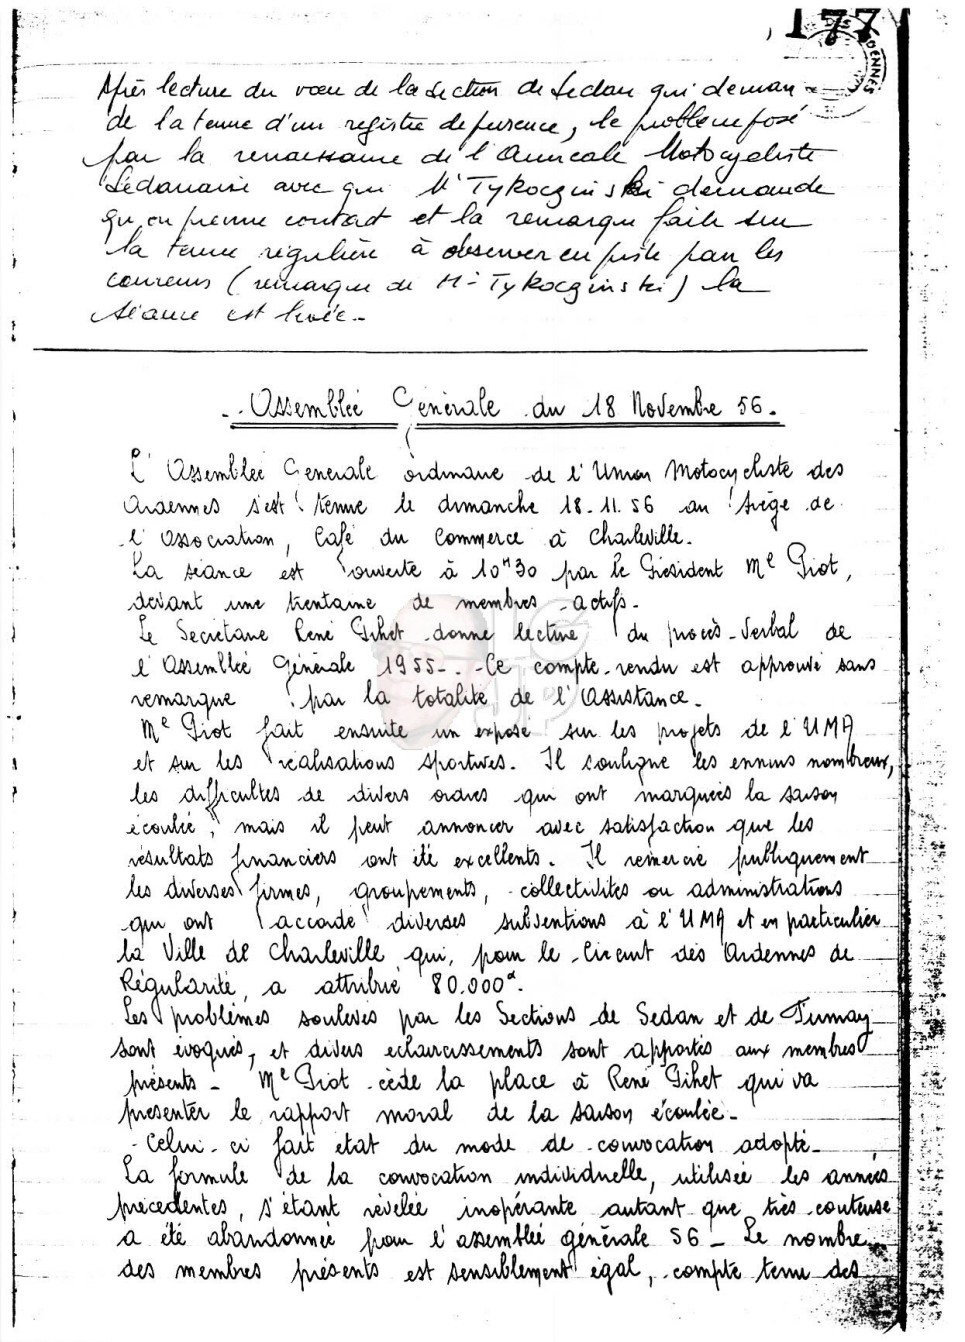 177
Après lecture du vœu de la section de Sedan qui deman-
de la tenue d'un registre de présence, le problème posé
par la renaissance de l'Amicale Motocycliste
Sedanaise avec qui Mr Tykoczinski demande
qu'on prenne contact et la remarque faite sur
la tenue régulière à observer en piste par les
coureurs (remarque de Mr Tykoczinski) la
séance est levée.-
-. Assemblée Générale du 18 Novembre 56.
L'Assemblée Générale ordinaire de l'Union Motocycliste des
Ardennes s'est tenue le dimanche 18.11.56 au siège de
l'Association, Café du Commerce à Charleville.
La séance est ouverte à 10H30 par le Président Me Giot,
devant une trentaine de membres actifs.
Le Secrétaire René Gihet donne lecture du procès-verbal de
l'Assemblée Générale 1955-. Ce compte-rendu est approuvé sans
remarque par la totalité de l'Assistance.
Me Giot fait ensuite un exposé sur les projets de l'UMA
et sur les réalisations sportives. Il souligne les ennuis nombreux,
les difficultés de divers ordres qui ont marquées la saison
écoulée, mais il peut annoncer avec satisfaction que les
résultats financiers ont été excellents. Il remercie publiquement
les diverses firmes, groupements, collectivités ou administrations
qui ont accordé diverses subventions à l'UMA et en particulier
la Ville de Charleville qui, pour le Circuit des Ardennes de
Régularité, a attribué 80.000
Les problèmes soulevés par les Sections de Sedan et de Fumay
sont évoqués, et divers éclaircissements sont apportés aux membres
présents - Me Giot cède la place à René Gihet qui va
présenter le rapport moral de la saison écoulée-
- Celui-ci fait état du mode de convocation adopté-
La formule de la convocation individuelle, utilisée les années
précédentes, s'étant révélée inopérante autant que très couteuse
a été abandonnée pour l'assemblée générale 56 - Le nombre
des membres présents est sensiblement égal, compte tenu des